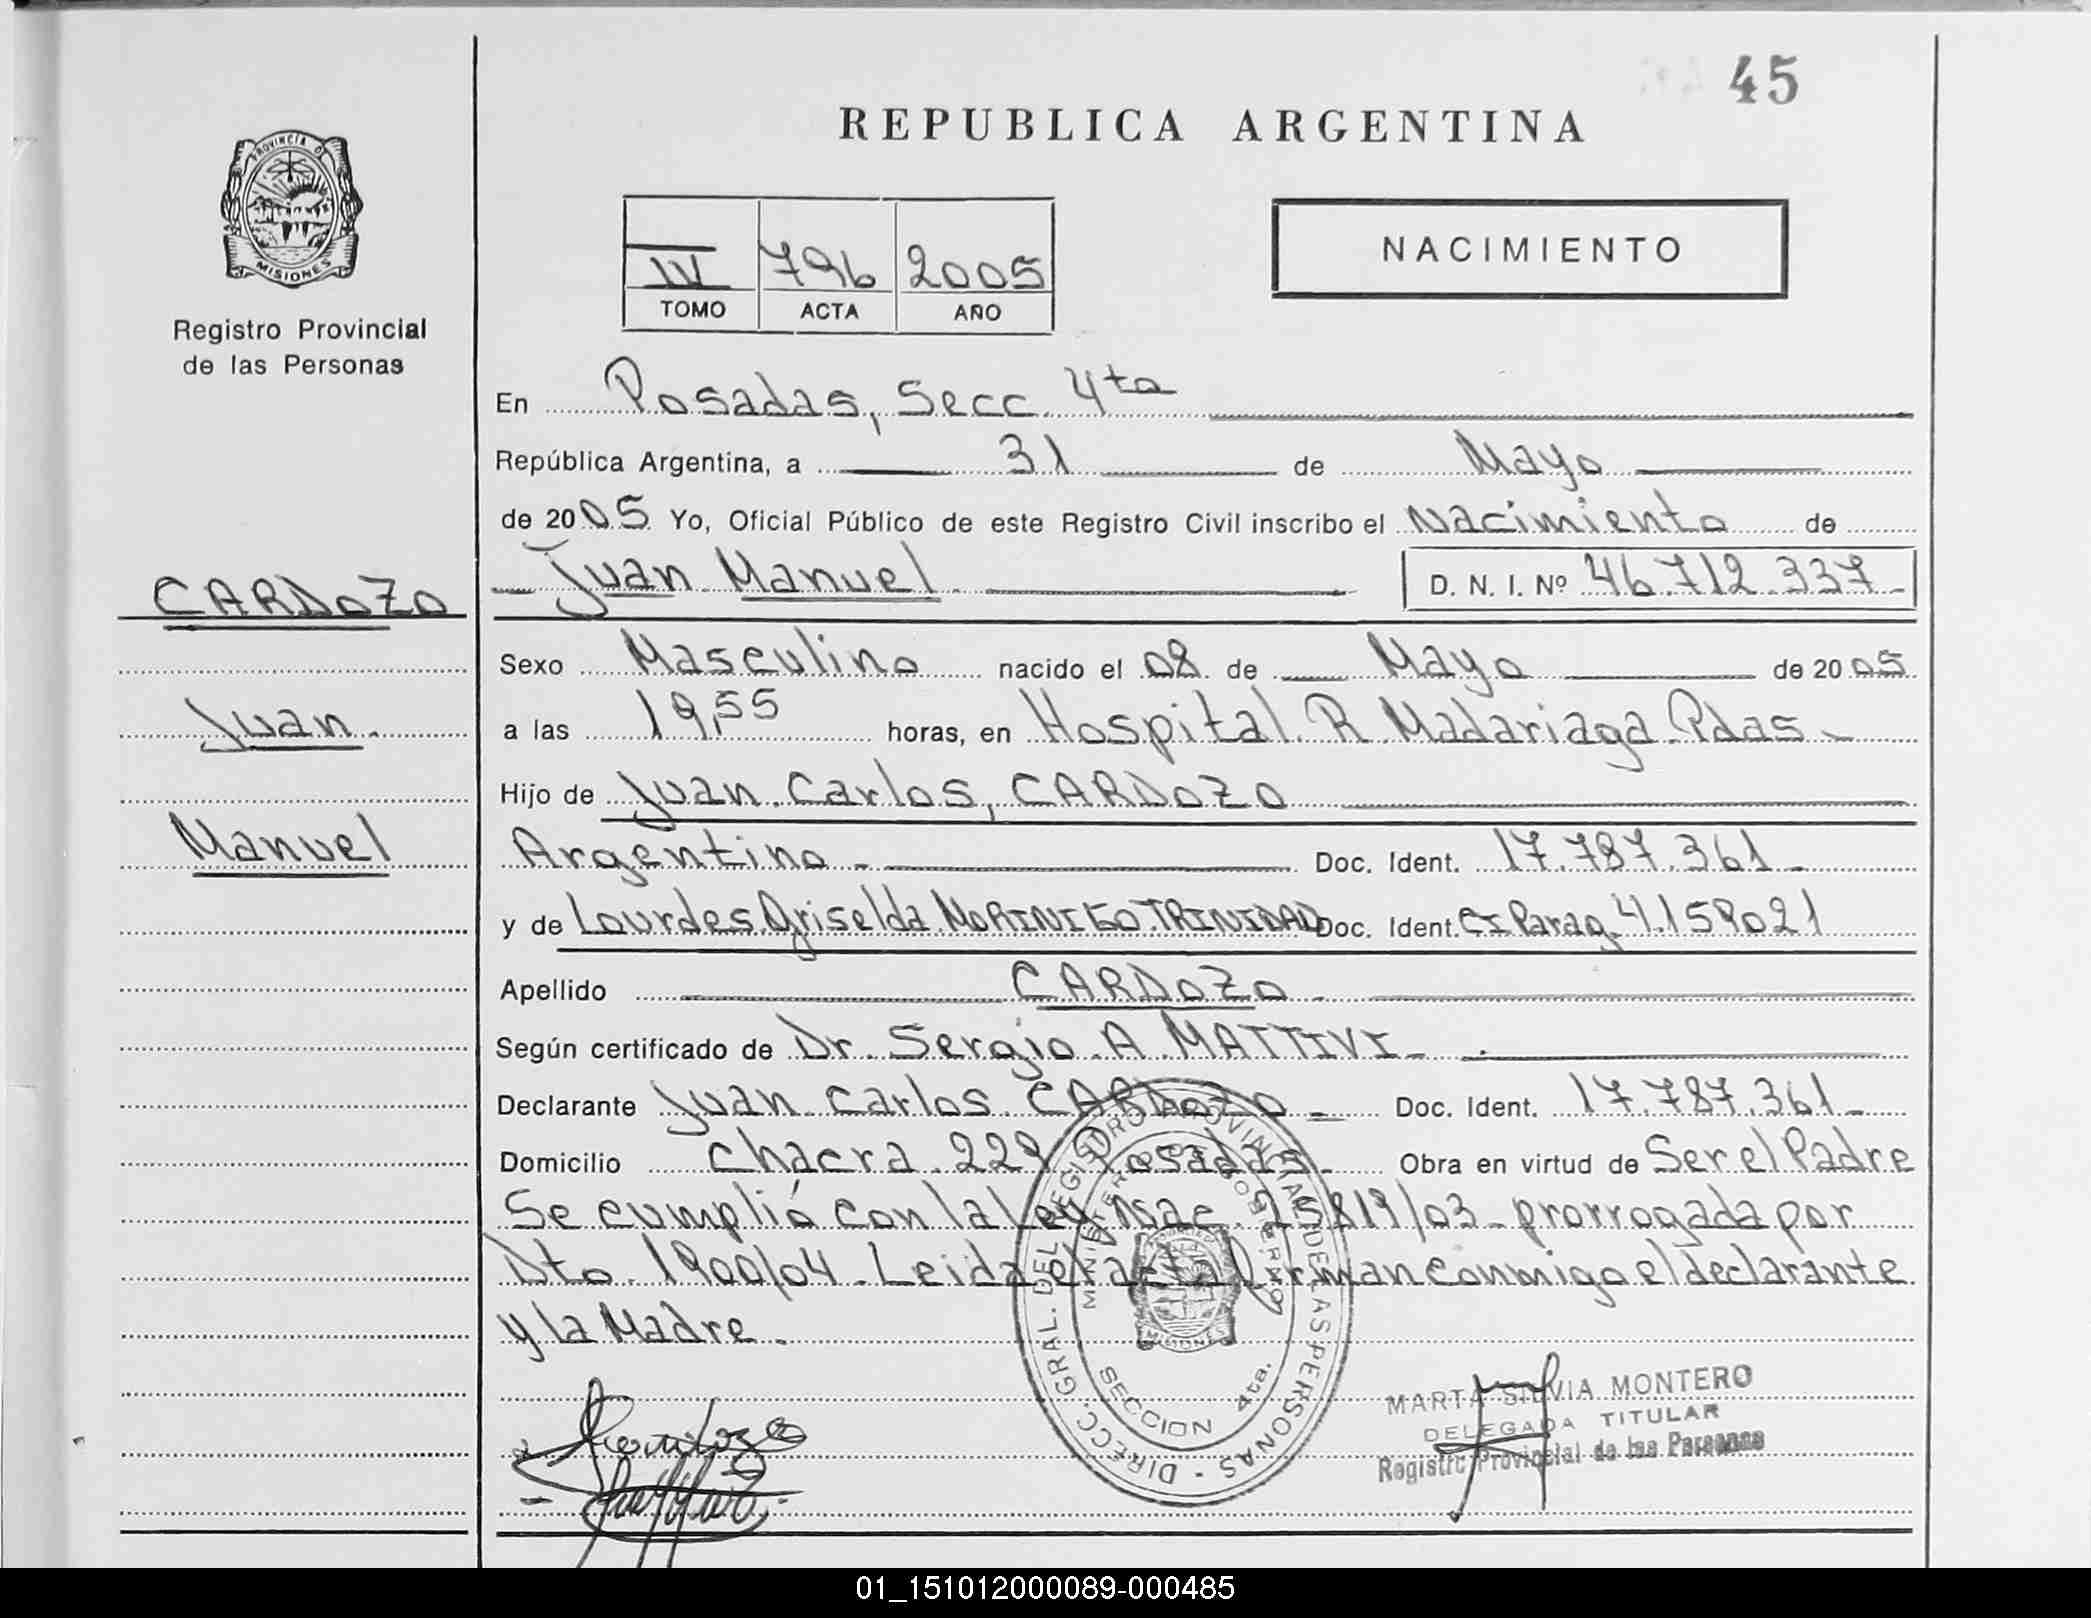 45
REPUBLICA ARGENTINA
PROVINCIA DE
MISIONES
Registro Provincial
de las Personas
IV 796 2005
TOMO ACTA AÑO
NACIMIENTO
En Posadas, Secc 4ta
República Argentina, a 31 de Mayo
de 2005 Yo, Oficial Público de este Registro Civil inscribo el Nacimiento de
Juan Manuel D. N. I. Nº 46.712.337-
CARDOZO
Juan
Manuel
Sexo Masculino nacido el 08 de Mayo de 2005
a las 19,55 horas, en Hospital R Madariaga Pdas-
Hijo de Juan Carlos, CARDOZO
Argentino - Doc. Ident. 17.787.361-
y de Lourdes Griselda MORINIGO TRINIDAD Doc. Ident. CI Parag. 4.159021
Apellido CARDOZO-
Según certificado de Dr. Sergio A MATTIVI-
Declarante Juan Carlos CARDOZO- Doc. Ident. 17.787.361-
Domicilio Chacra 229 Posadas- Obra en virtud de Ser el Padre
Se cumplió con la Ley Nac 25819/03- prorrogada por
Dto. 1900/04. Leida el acta firman conmigo el declarante
y la Madre.
DIRECC. GRAL. DEL REGISTRO PROVINCIAL DE LAS PERSONAS -
MINISTERIO DE GOBIERNO
MISIONES
SECCION 4ta.
MARTA SILVIA MONTERO
DELEGADA TITULAR
Registro Provincial de las Personas
01_151012000089-000485